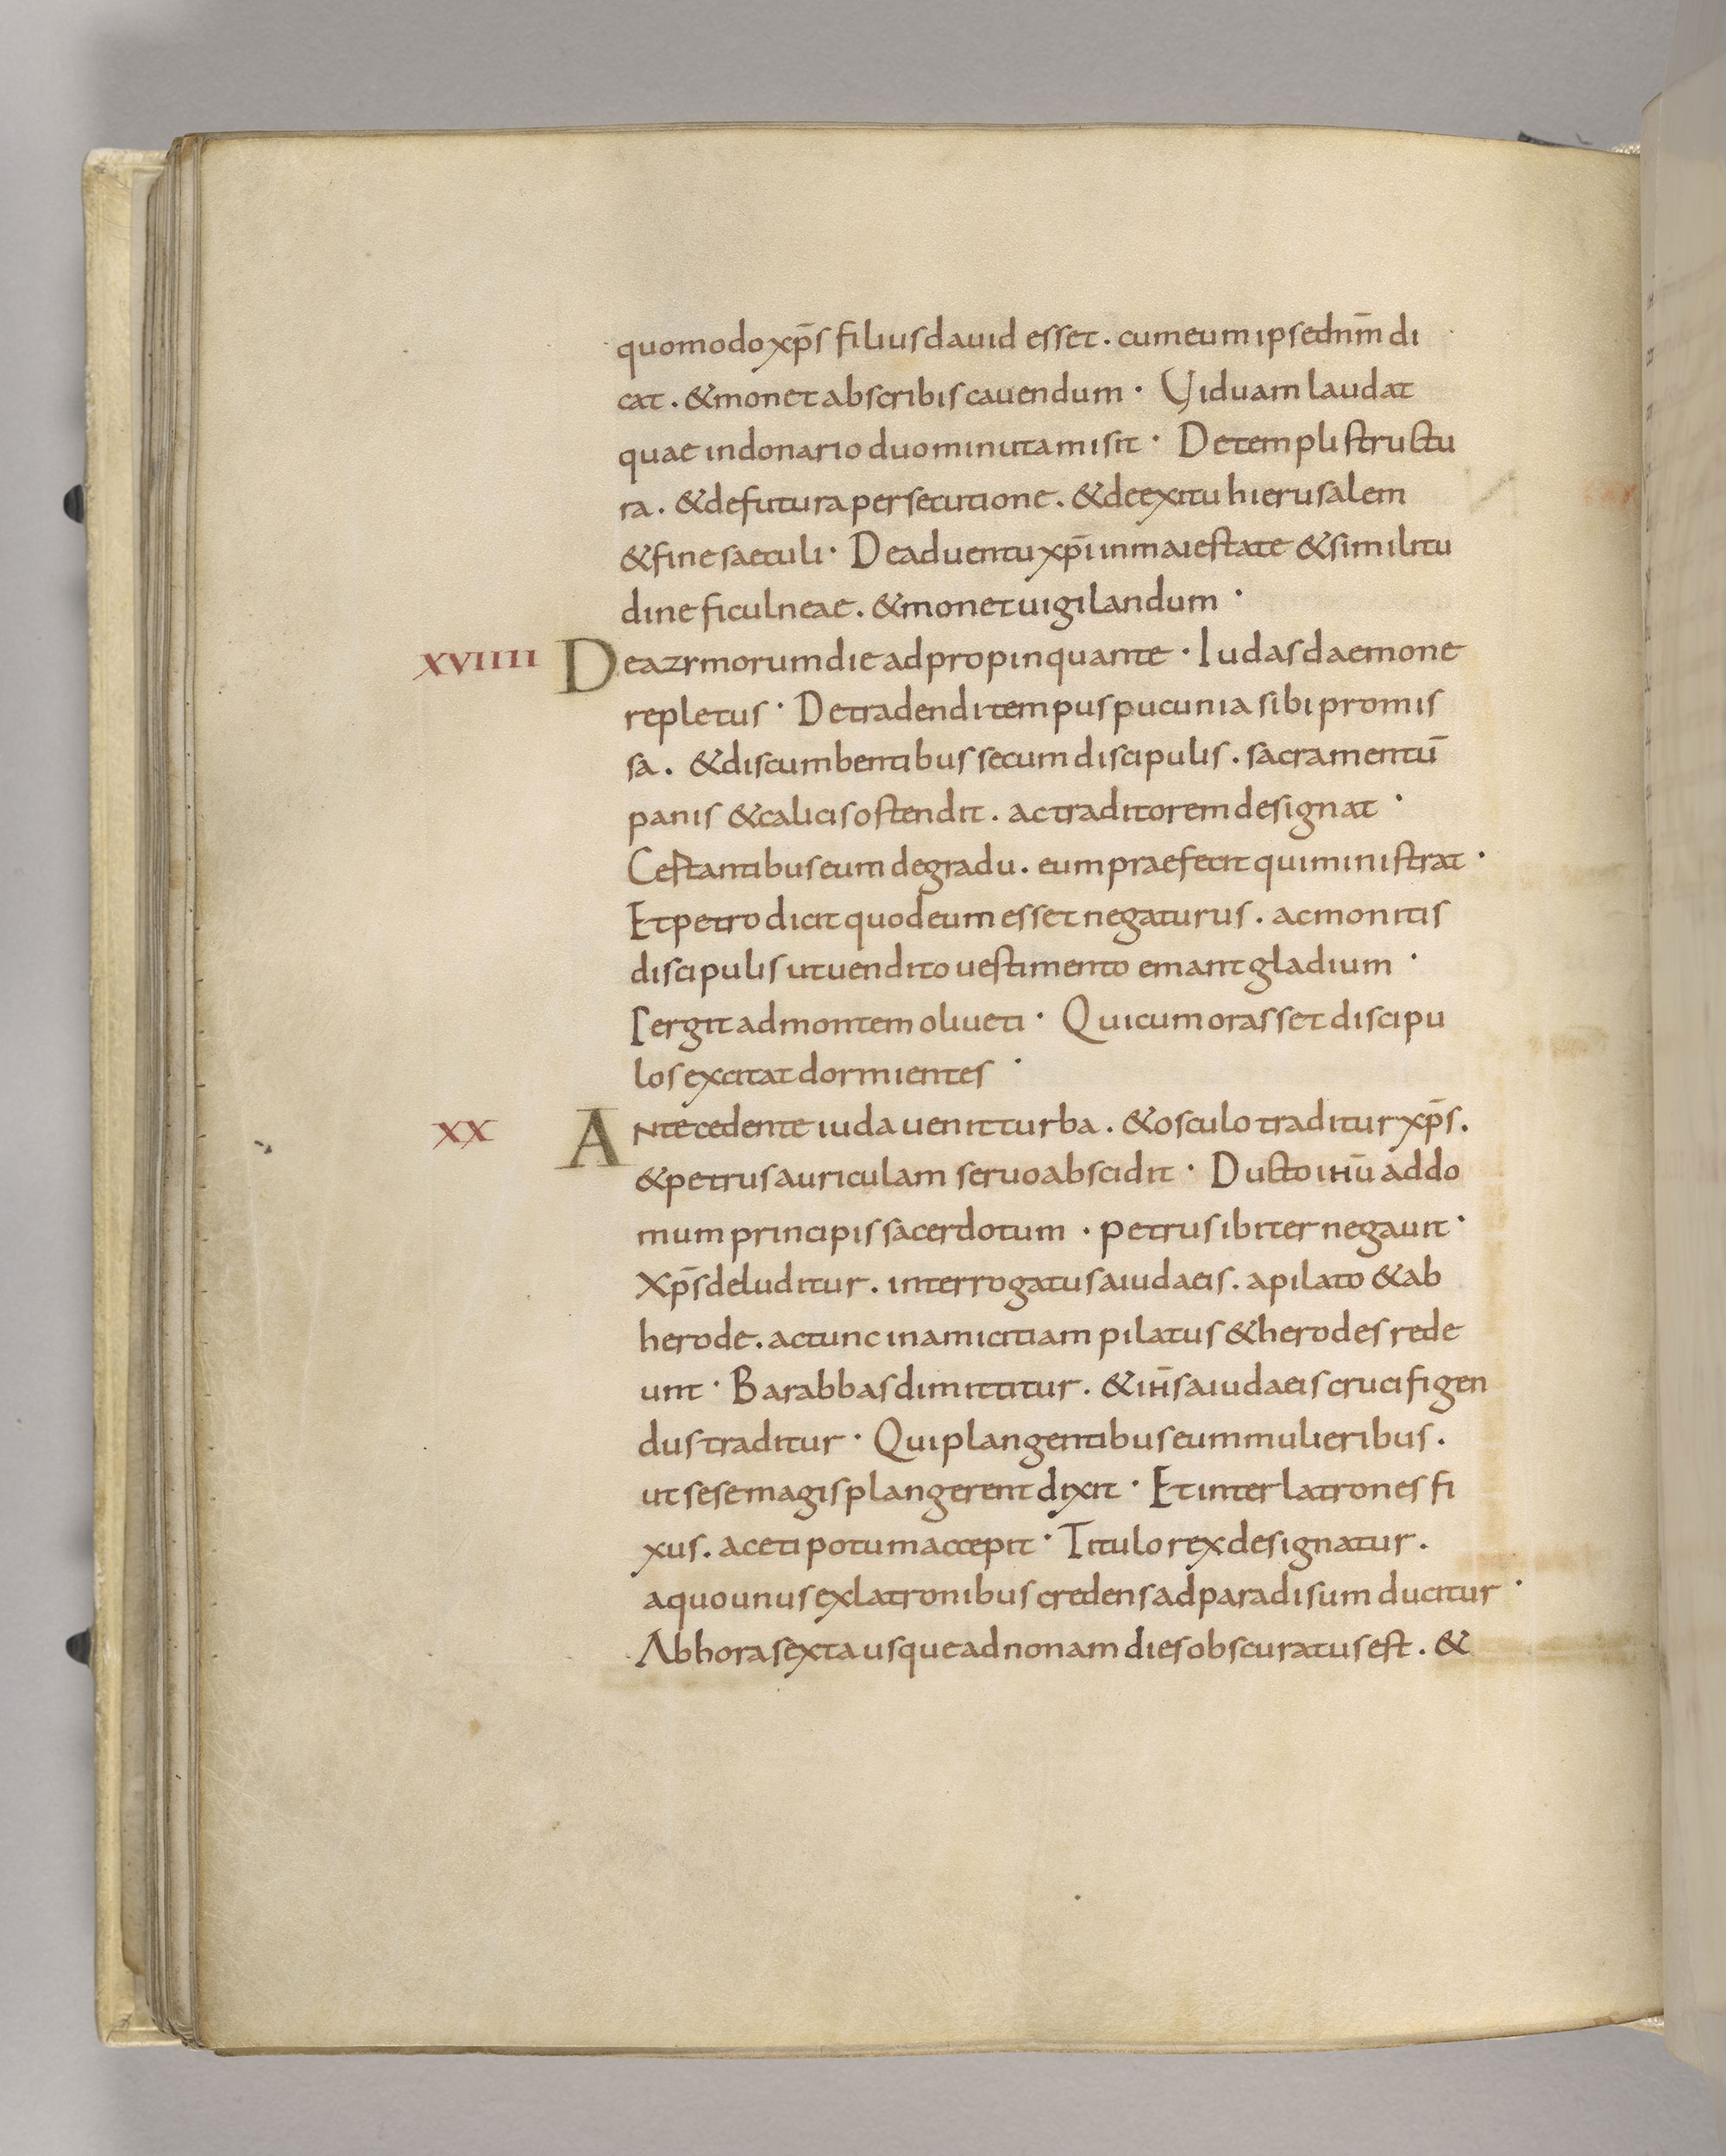 quomodo xp̄s filius dauid esset. cum eum ipse dnm̄ di
cat. & monet ab scribis cauendum · Viduam laudat
quae in donario duo minuta misit · De templi structu
ra. & de futura persecutione. & de exitu hierusalem
& fine saeculi · De aduentu xp̄i in maiestate & similitu
dine ficulneae. & monet uigilandum ·
XVIIII De azymorum die adpropinquante · Iudas daemone
repletus · De tradendi tempus pucunia sibi promis
sa. & discumbentibus secum discipulis. sacramentū
panis & calicis ostendit. ac traditorem designat ·
Certantibus eum de gradu. eum praefecit qui ministrat ·
Et petro dicit quod eum esset negaturus. ac monitis
discipulis ut uendito uestimento emant gladium ·
Pergit ad montem oliueti · Qui cum orasset discipu
los excitat dormientes ·
XX Antecedente iuda uenit turba. & osculo traditur xp̄s.
& petrus auriculam seruo abscidit · Ducto ihū ad do
mum principis sacerdotum · petrus ibi ter negauit ·
Xp̄s deluditur. interrogatus a iudaeis. a pilato & ab
herode. ac tunc in amicitiam pilatus & herodes rede
unt · Barabbas dimittitur. & ih̄s a iudaeis crucifigen
dus traditur · Qui plangentibus eum mulieribus.
ut sese magis plangerent dixit · Et inter latrones fi
xus. aceti potum accepit · Titulo rex designatur.
a quo unus ex latronibus credens ad paradisum ducitur ·
Ab hora sexta usque ad nonam dies obscuratus est. &